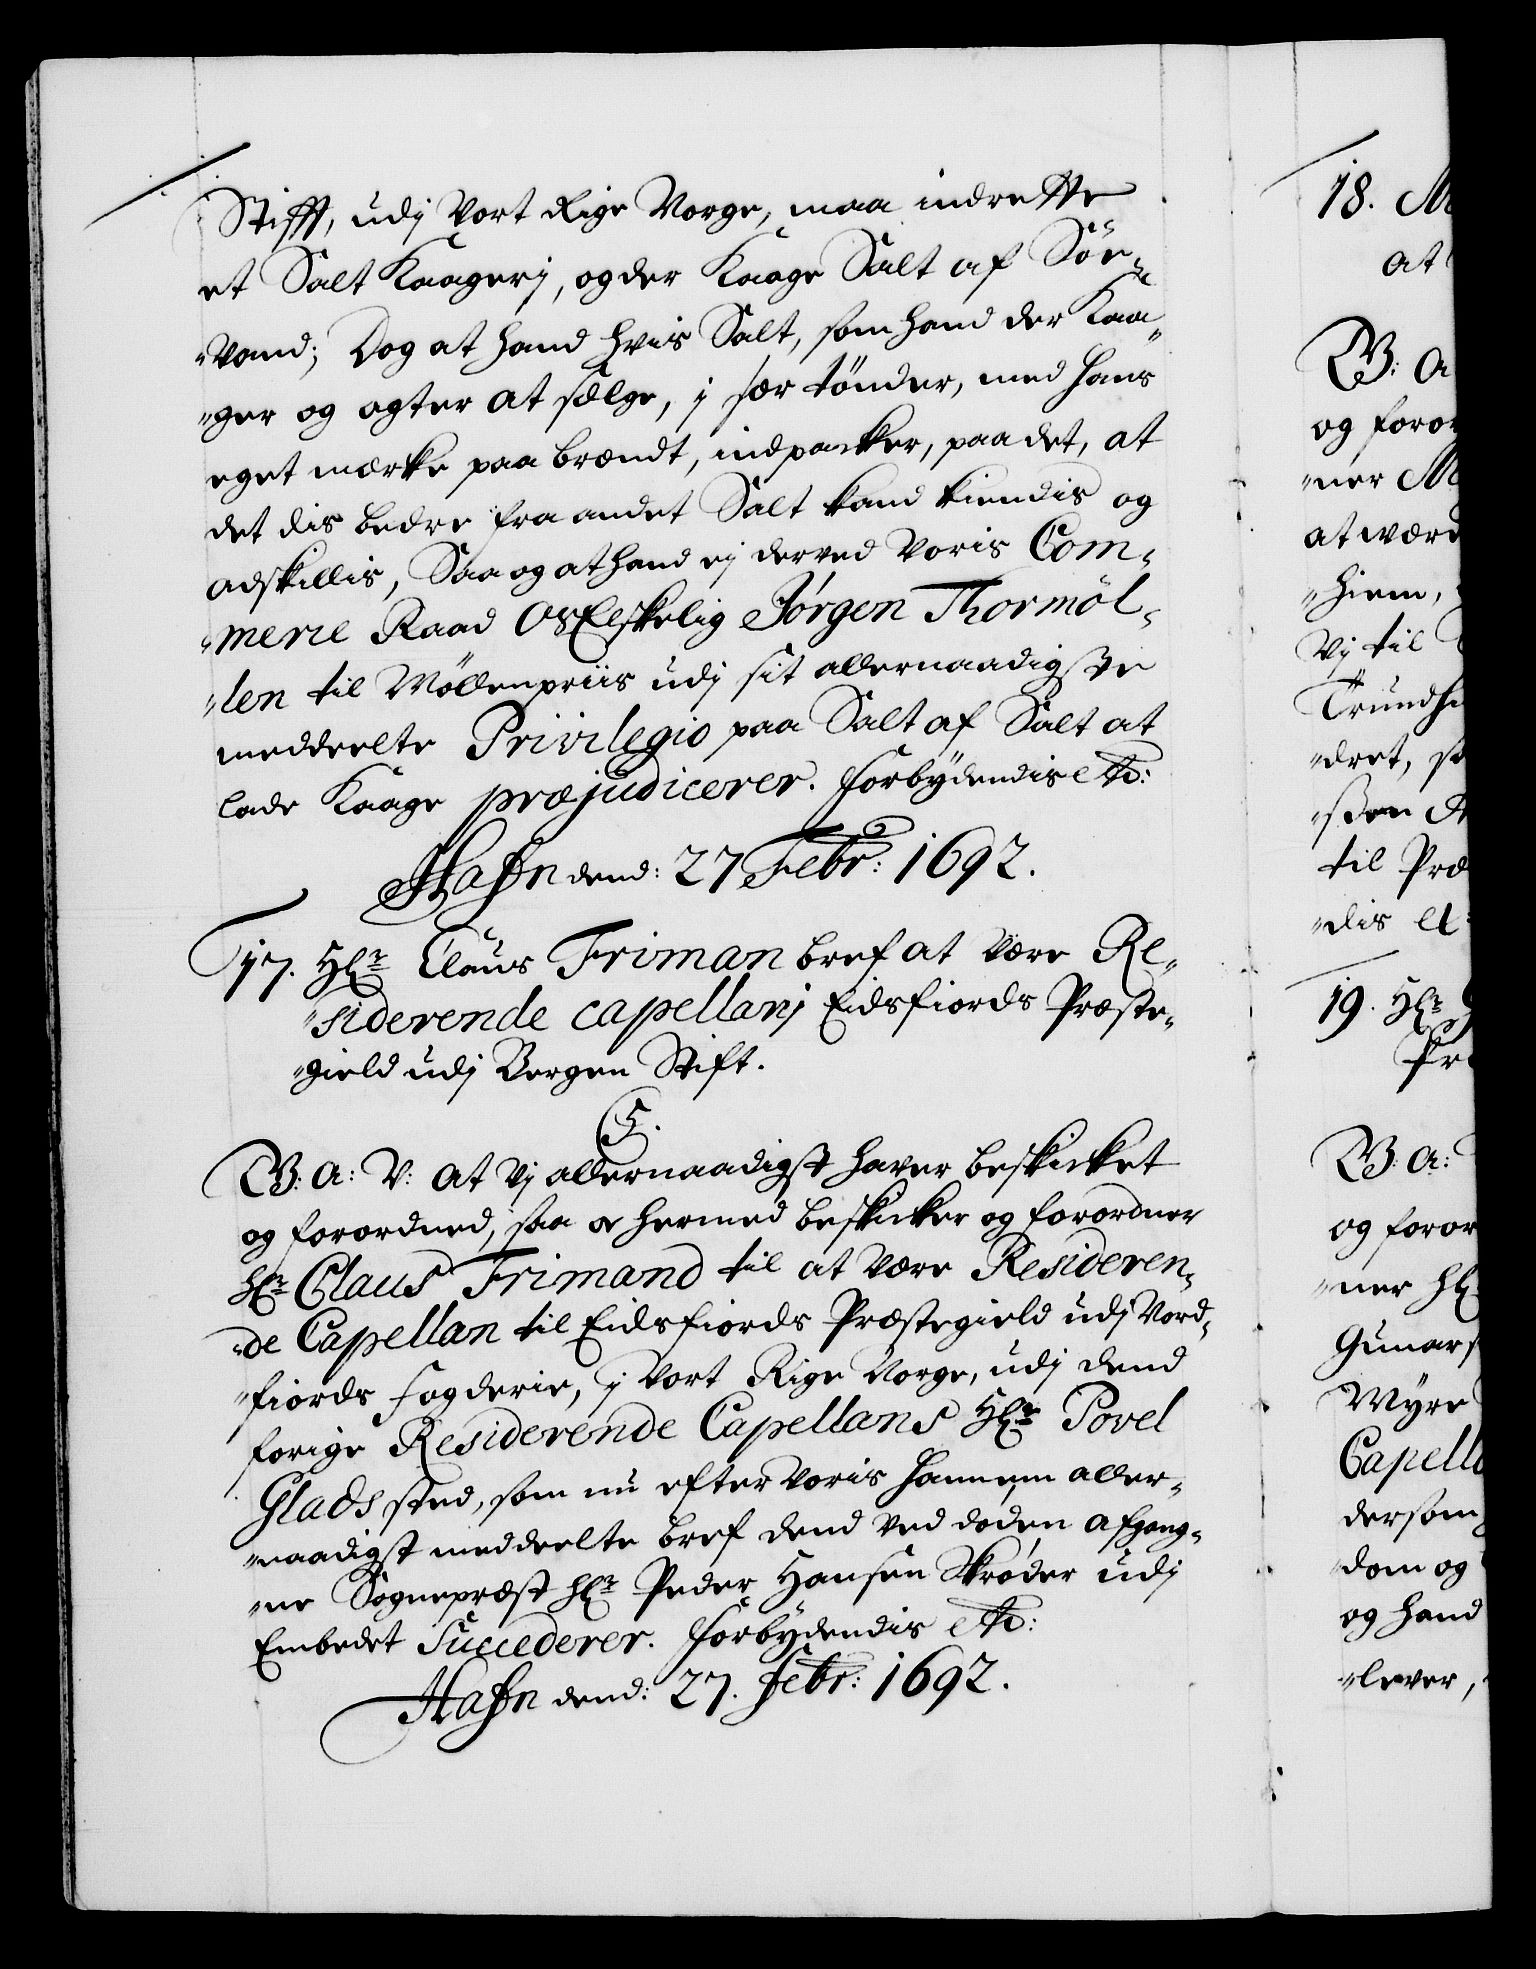 Stifft, udj Vort Rige Norge, maa indrette
et Salt Kaagerj, og der Kaage Salt af Söe-
vand; Dog at hand hvis Salt, som hand der Kaa-
ger og agter at sælge, j sær tönder, med hans
eget mærke paa brændt, indpacker, paa det, at
det dis bedre fra andet Salt kand kiendis og
adskillis, Saa og at hand ej derved Voris Com-
merie Raad Os Elskelig Jörgen Thormöl-
len til Möllenpriis udj sit allernaadigste
meddeelte Privilegio paa Salt af Salt at
lade Kaage præjudicerer. Forbydendis etc:
Hafn dend: 27 Febr: 1692.
17. Hr. Claus Friman bref at være Re-
siderende capellanj Eidsfiords Præste-
gield udj Bergen Stift.
C5.
W: A: V: at Vj allernaadigst haver beskicket
og forordned, saa og hermed beskicker og forordner
Hr. Claus Frimand til at være Resideren-
de Capellan til Eidsfiords Præstegield udj Nord-
fiords fogderie, j Vort Rige Norge, udj dend
forige Residerende Capellans Hr. Povel
Glads sted, som nu efter Voris hannem aller-
naadigst meddeelte bref dend ved döden afgang-
ne Sognepræst Hr. Peder Hansen Skröder udj
Embedet Succederer. Forbydendis etc:
Hafn dend: 27. Febr: 1692.
18. M
at
W: A
og foror
ner M
at være
hiem,
Vj til
Trundhi
dret, s
til Præ
dis et
19. Hr.
Pr
W: A:
og foror
ner Hr
Gunars
Myre
Capell
dersom
dom og
og hand
lever,